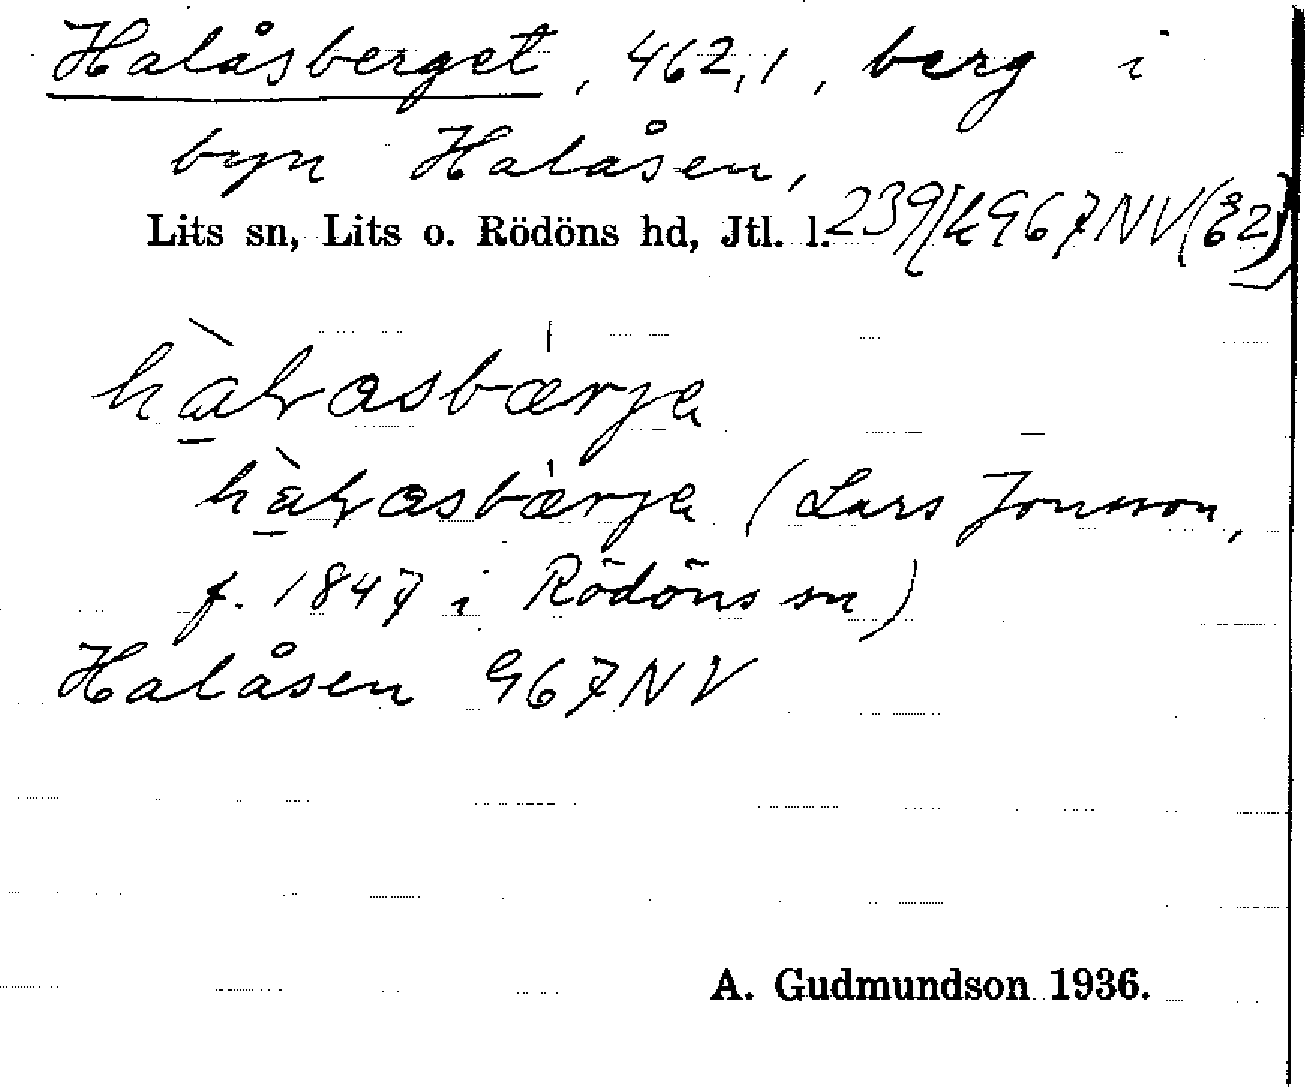 Halåsberget, 462,1, berg i
byn Halåsen,
Lits sn, Lits o. Rödöns hd, Jtl. l. 239/k967NV(
(Lars Jonsson,
f. 1847 i Rödöns sn)
Halåsen 967NV
A. Gudmundson 1936.